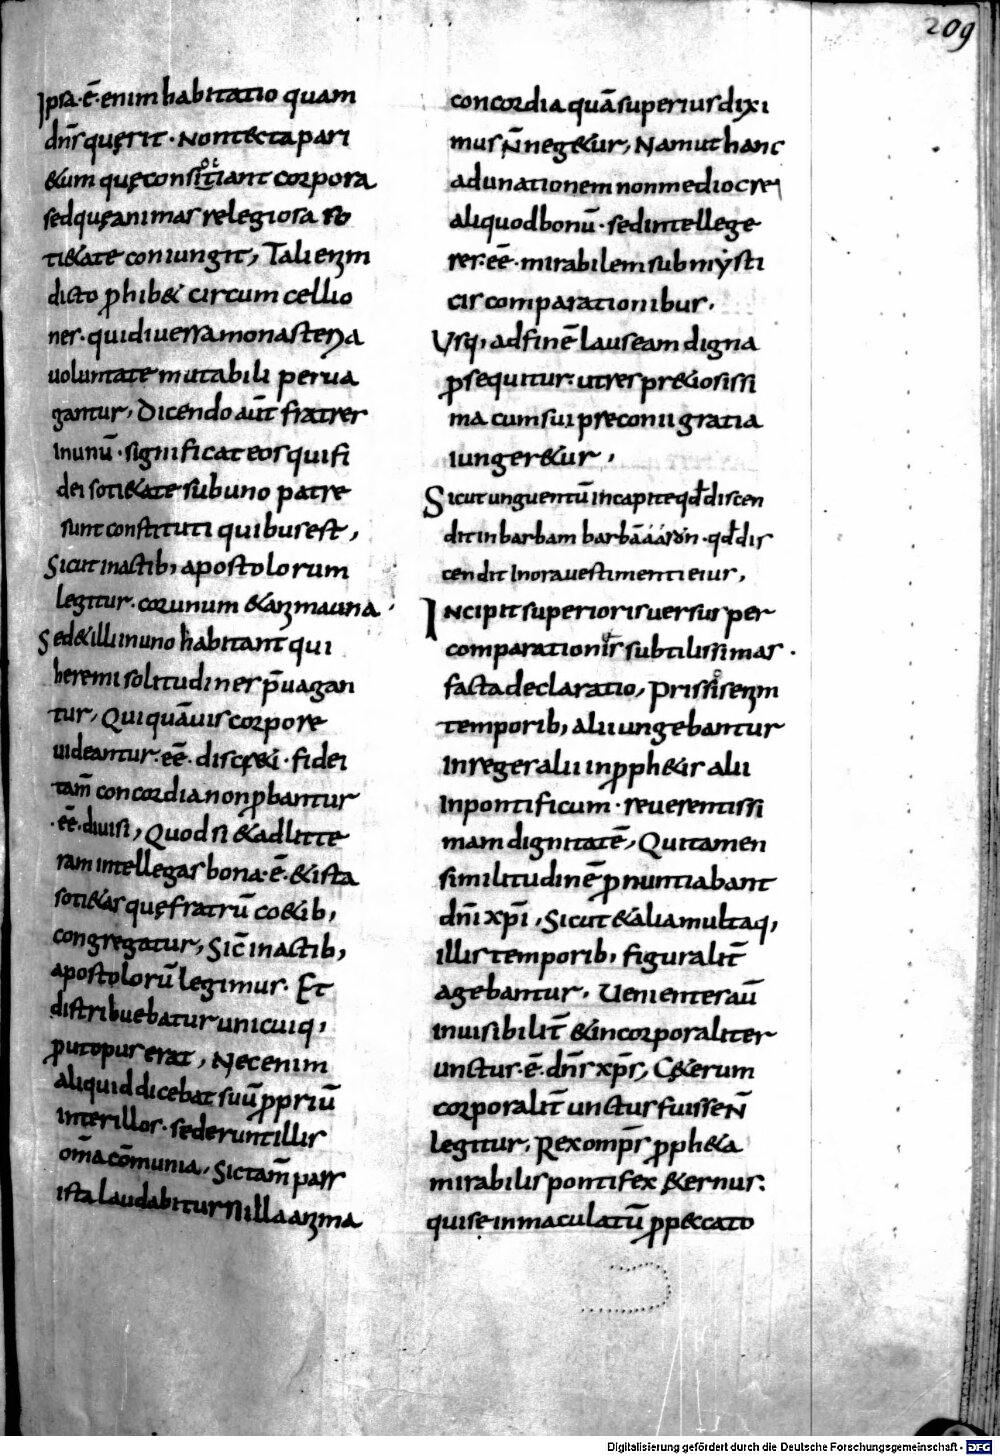 209
Ipsa·ē·enim habitatio quam
dn̄s quęrit· Non tecta pari
&um quę consitiant corpora
sed quę animas relegiosa so
ti&ate coniungit, Tali enim
dicto ꝓhib& circumcellio
nes· qui diuersa monasteria
uoluntate mutabili perua
gantur, Dicendo aūt fratres
in unū· significat eos qui fi
dei soti&ate sub uno patre
sunt constituti quibus est,
Sicut in actib; apostolorum
legitur· cor unum & anima una·
Sed & illi in uno habitant qui
heremi solitudines p̄uagan
tur, Qui quāuis corpore
uideantur· eē· discr&i· fidei
tam̄ concordia non ꝓbantur
·eē· diuisi, Quod si & ad litte
ram intellegas bona·ē· & ista
soti&as quę fratrū co&ib;
congregatur, Sic̄ in actib;
apostolorū legimus· Et
distribuebatur unicuiq;
ꝓut opus erat, Nec enim
aliquid dicebat suū ꝓpriū
inter illos· sed erunt illis
om̄a cōmunia, Sic tam̄ pars
ista laudabitur n̄ illa anima
concordia quā superius dixi
mus n̄ neg&ur, Nam ut hanc
adunationem non mediocre
aliquod bonū· sed intellege
res· eē· mirabilem sub mẏsti
cis comparationibus,
Usq; ad finē laus eam digna
ꝓsequitur· ut res pr&iosissi
ma cum sui preconii gratia
iunger&ur,
Sicut unguentū in capite qđ discen
dit in barbam barbā ááron· qđ dis
cendit in ora uestimenti eius,
Incipit superioris uersus per
comparationis subtilissimas·
facta declaratio, Prissis enim
temporib; alii ungebantur
in reges alii in ꝓph&is alii
in pontificum· reuerentissi
mam dignitatē, Qui tamen
similitudinē ꝓnuntiabant
dn̄i xp̄i, Sicut & alia multaq;
illis temporib; figuralit̄
agebantur, Ueniente aū
inuisibilit̄ & incorporaliter
unctus·ē· dn̄s xp̄s, C&erum
corporalit̄ unctus fuisse n̄
legitur, Rex omp̄s ꝓph&a
mirabilis pontifex &ernus:
qui se inmaculatū ꝓ peccato
Digitalisierung gefördert durch die Deutsche Forschungsgemeinschaft - DFG